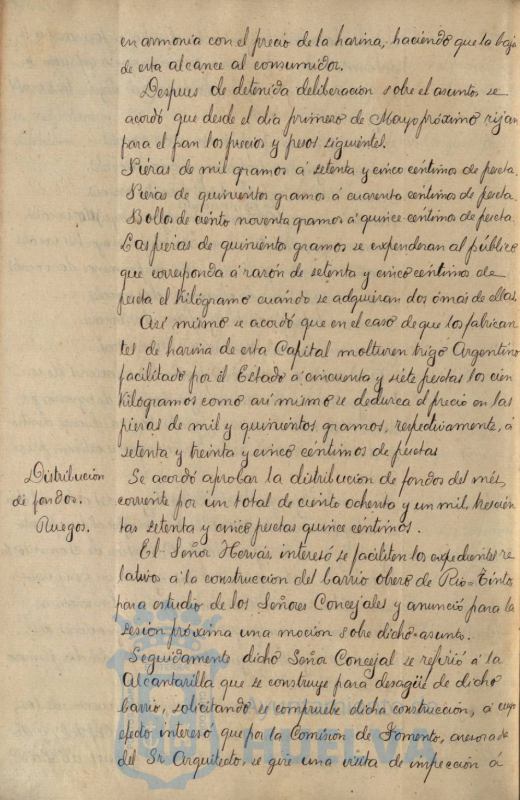 en armonía con el precio de la harina, haciendo que la baja
de esta alcance al consumidor.
Despues de detenida deliberación sobre el asunto, se
acordó que desde el día primero de Mayo próximo rijan
para el pan los precios y pesos siguientes.
Piezas de mil gramos á setenta y cinco céntimos de peseta.
Piezas de quinientos gramos á cuarenta centimos de peseta.
Bollos de ciento noventa gramos á quince centimos de peseta.
Las piezas de quinientos gramos se expenderan al público
que corresponda á razón de setenta y cinco céntimos de
peseta el Kilógramo cuándo se adquieran dos ó mas de ellas.
Así mismo se acordó que en el caso de que los fabrican
tes de harina de esta Capital molturen trigo Argentino
facilitado por el Estado á cincuenta y siete pesetas los cien
Kilogramos como asi mismo se deduzca el precio en las
piezas de mil y quinientos gramos, respectivamente, á
setenta y treinta y cinco céntimos de pesetas
Distribución
de fondos.
Se acordó aprobar la distribución de fondos del més
corriente por un total de ciento ochenta y un mil, trescien
tas setenta y cinco pesetas quince centimos.
Ruegos.
El Señor Hervás, interesó se faciliten los expedientes re
lativos á la construccion del barrio obrero de Rio=Tinto,
para estudio de los Señores Concejales y anunció para la
sesion próxima una moción sobre dicho asunto.
Seguidamente dicho Señor Concejal se refirió á la
Alcantarilla que se construye para desagüe de dicho
barrio, solicitando se compruebe dicha construcción, á cuyo
efecto intereso que por la Comisión de Fomento, asesorada
del Sr. Arquitecto, se gire una visita de inspección á
HUELVA